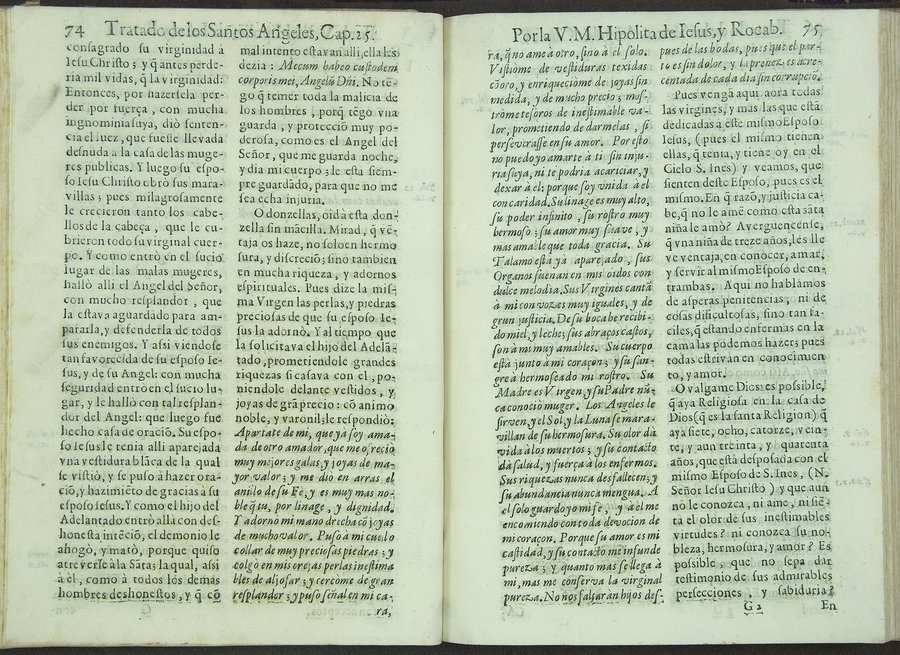 74 Tratado de los Santos Angeles, Cap. 25.
consagrado su virginidad à
Iesu Christo; y q̃ antes perde-
ria mil vidas, q̃ la virginidad:
Entonces, por hazersela per-
der por fuerça, con mucha
ingnominia suya, diò senten-
cia el Iuez, que fuesse llevada
desnuda a la casa de las muge-
res publicas. Y luego su espo-
so Iesu Christo obrò sus mara-
villas; pues milagrosamente
le crecieron tanto los cabe-
llos de la cabeça, que le cu-
brieron todo su virginal cuer-
po. Y como entrò en el sucio
lugar de las malas mugeres,
hallò alli el Angel del Señor,
con mucho resplandor, que
la estava aguardado para am-
pararla, y defenderla de todos
sus enemigos. Y assi viendose
tan favorecida de su esposo Ie-
sus, y de su Angel: con mucha
seguridad entrò en el sucio lu-
gar, y le hallò con tal resplan-
dor del Angel: que luego fue
hecho casa de oraciõ. Su espo-
so Iesus le tenia alli aparejada
vna vestidura blãca de la qual
se vistiò, y se puso à hazer ora-
ciõ, y hazimiẽto de gracias à su
esposo Iesus. Y como el hijo del
Adelantado entrò allà con des-
honesta intẽciõ, el demonio le
ahogò, y matò, porque quiso
atreverse a la Sãta; la qual, assi
à èl, como à todos los demas
hombres deshonestos, y q̃ cõ
mal intento estavan alli, ella les
dezia: Mecum habeo custodem
corporis mei, Angelũ Dñi. No tẽ-
go q̃ temer toda la malicia de
los hombres, porq̃ tẽgo vna
guarda, y protecciõ muy po-
derosa, como es el Angel del
Señor, que me guarda noche,
y dia mi cuerpo; le esta siem-
pre guardãdo, para que no me
sea echa injuria.
O donzellas, oid à esta don-
zella sin mãcilla. Mirad, q̃ vẽ-
taja os haze, no solo en hermo
sura, y discreciõ; sino tambien
en mucha riqueza, y adornos
espirituales. Pues dize la mis-
ma Virgen las perlas, y piedras
preciosas de que su esposo Ie-
sus la adornò. Y al tiempo que
la solicitava el hijo del Adelã-
tado, prometiendole grandes
riquezas si casava con el, po-
niendole delante vestidos, y
joyas de grã precio: cõ animo
noble, y varonil; le respondiò:
Apartate de mi, que ya soy ama-
da de otro amador, que me ofreciò
muy mejores galas, y joyas de ma-
yor valor; y me diò en arras el
anillo de su Fè, y es muy mas no-
ble q̃ tu, por linage, y dignidad.
Y adornò mi mano drecha cõ joyas
de mucho valor. Puso à mi cuello
collar de muy preciosas piedras; y
colgò en mis orejas perlas inestima
bles de aljofar; y cercòme de gran
resplandor; y puso señal en mi ca-
ra,
Por la V. M. Hipòlita de Iesus, y Rocab. 75
ra, q̃ no ame à otro, sinò à el solo.
Vistiòme de vestiduras texidas
cõ oro, y enriqueciòme de joyas sin
medida, y de mucho precio; mos-
tròme tesoros de inestimable va-
lor, prometiendo de darmelas, si
perseverasse en su amor. Por esto
no puedo yo amarte à ti sin inju-
ria suya, ni te podria acariciar, y
dexar à èl: porque soy vnida a el
con caridad. Su linage es muy alto,
su poder infinito, su rostro muy
hermoso; su amor muy suave, y
mas amable que toda gracia. Su
Talamo està ya aparejado, sus
Organos suenan en mis oidos con
dulce melodia. Sus Virgines cantã
à mi con vozes muy iguales, y de
gran justicia. De su boca he recibi-
do miel, y leche; sus abraços castos,
son à mi muy amables. Su cuerpo
està junto à mi coraçon; y su san-
gre à hermoseado mi rostro. Su
Madre es Virgen, y su Padre nũ-
ca conociò muger. Los Angeles le
sirven, y el Sol, y la Luna se mara-
villan de su hermosura. Su olor dà
vida à los muertos; y su contacto
dà salud, y fuerça à los enfermos.
Sus riquezas nunca desfallecen; y
su abundancia nunca mengua. A
el solo guardo yo mi fe, y à el me
encomiendo con toda devocion de
mi coraçon. Porque su amor es mi
castidad, y su contacto me infunde
pureza; y quanto mas se llega à
mi, mas me conserva la virginal
pureza. No nos faltaràn hijos des-
pues de las bodas, pues que el par-
to es sin dolor, y la preñez es acre-
centada de cada dia sin corrupciõ.
Pues vengã aqui aora todas
las virgines, y mas las que estã
dedicadas à este mismo Esposo
Iesus, (pues el mismo tienen
ellas, q̃ tenia, y tiene oy en el
Cielo S. Ines) y veamos, que
sienten deste Esposo, pues es el
mismo. En q̃ razõ, y justicia ca-
be, q̃ no le amẽ como esta sãta
niña le amò? Averguencense,
q̃ vna niña de treze años, les lle
ve ventaja, en conocer, amar,
y servir al mismo Esposo de en-
trambas. Aqui no hablamos
de asperas penitencias, ni de
cosas dificultosas, sino tan fa-
ciles, q̃ estando enfermas en la
cama las podemos hazer; pues
todas estrivan en conocimien
to, y amor.
O valgame Dios! es possible,
q̃ aya Religiosa en la casa de
Dios (q̃ es la santa Religion) q̃
aya siete, ocho, catorze, vein-
te, y aun treinta, y quarenta
años, que està desposada con el
mismo Esposo de S. Ines, (N.
Señor Iesu Christo) y que aun
no le conozca, ni ame, ni siẽ-
ta el olor de sus inestimables
virtudes? ni conozca su no-
bleza, hermosura, y amor? Es
possible, que no sepa dar
testimonio de sus admirables
perfecciones, y sabiduria?
G 2 En